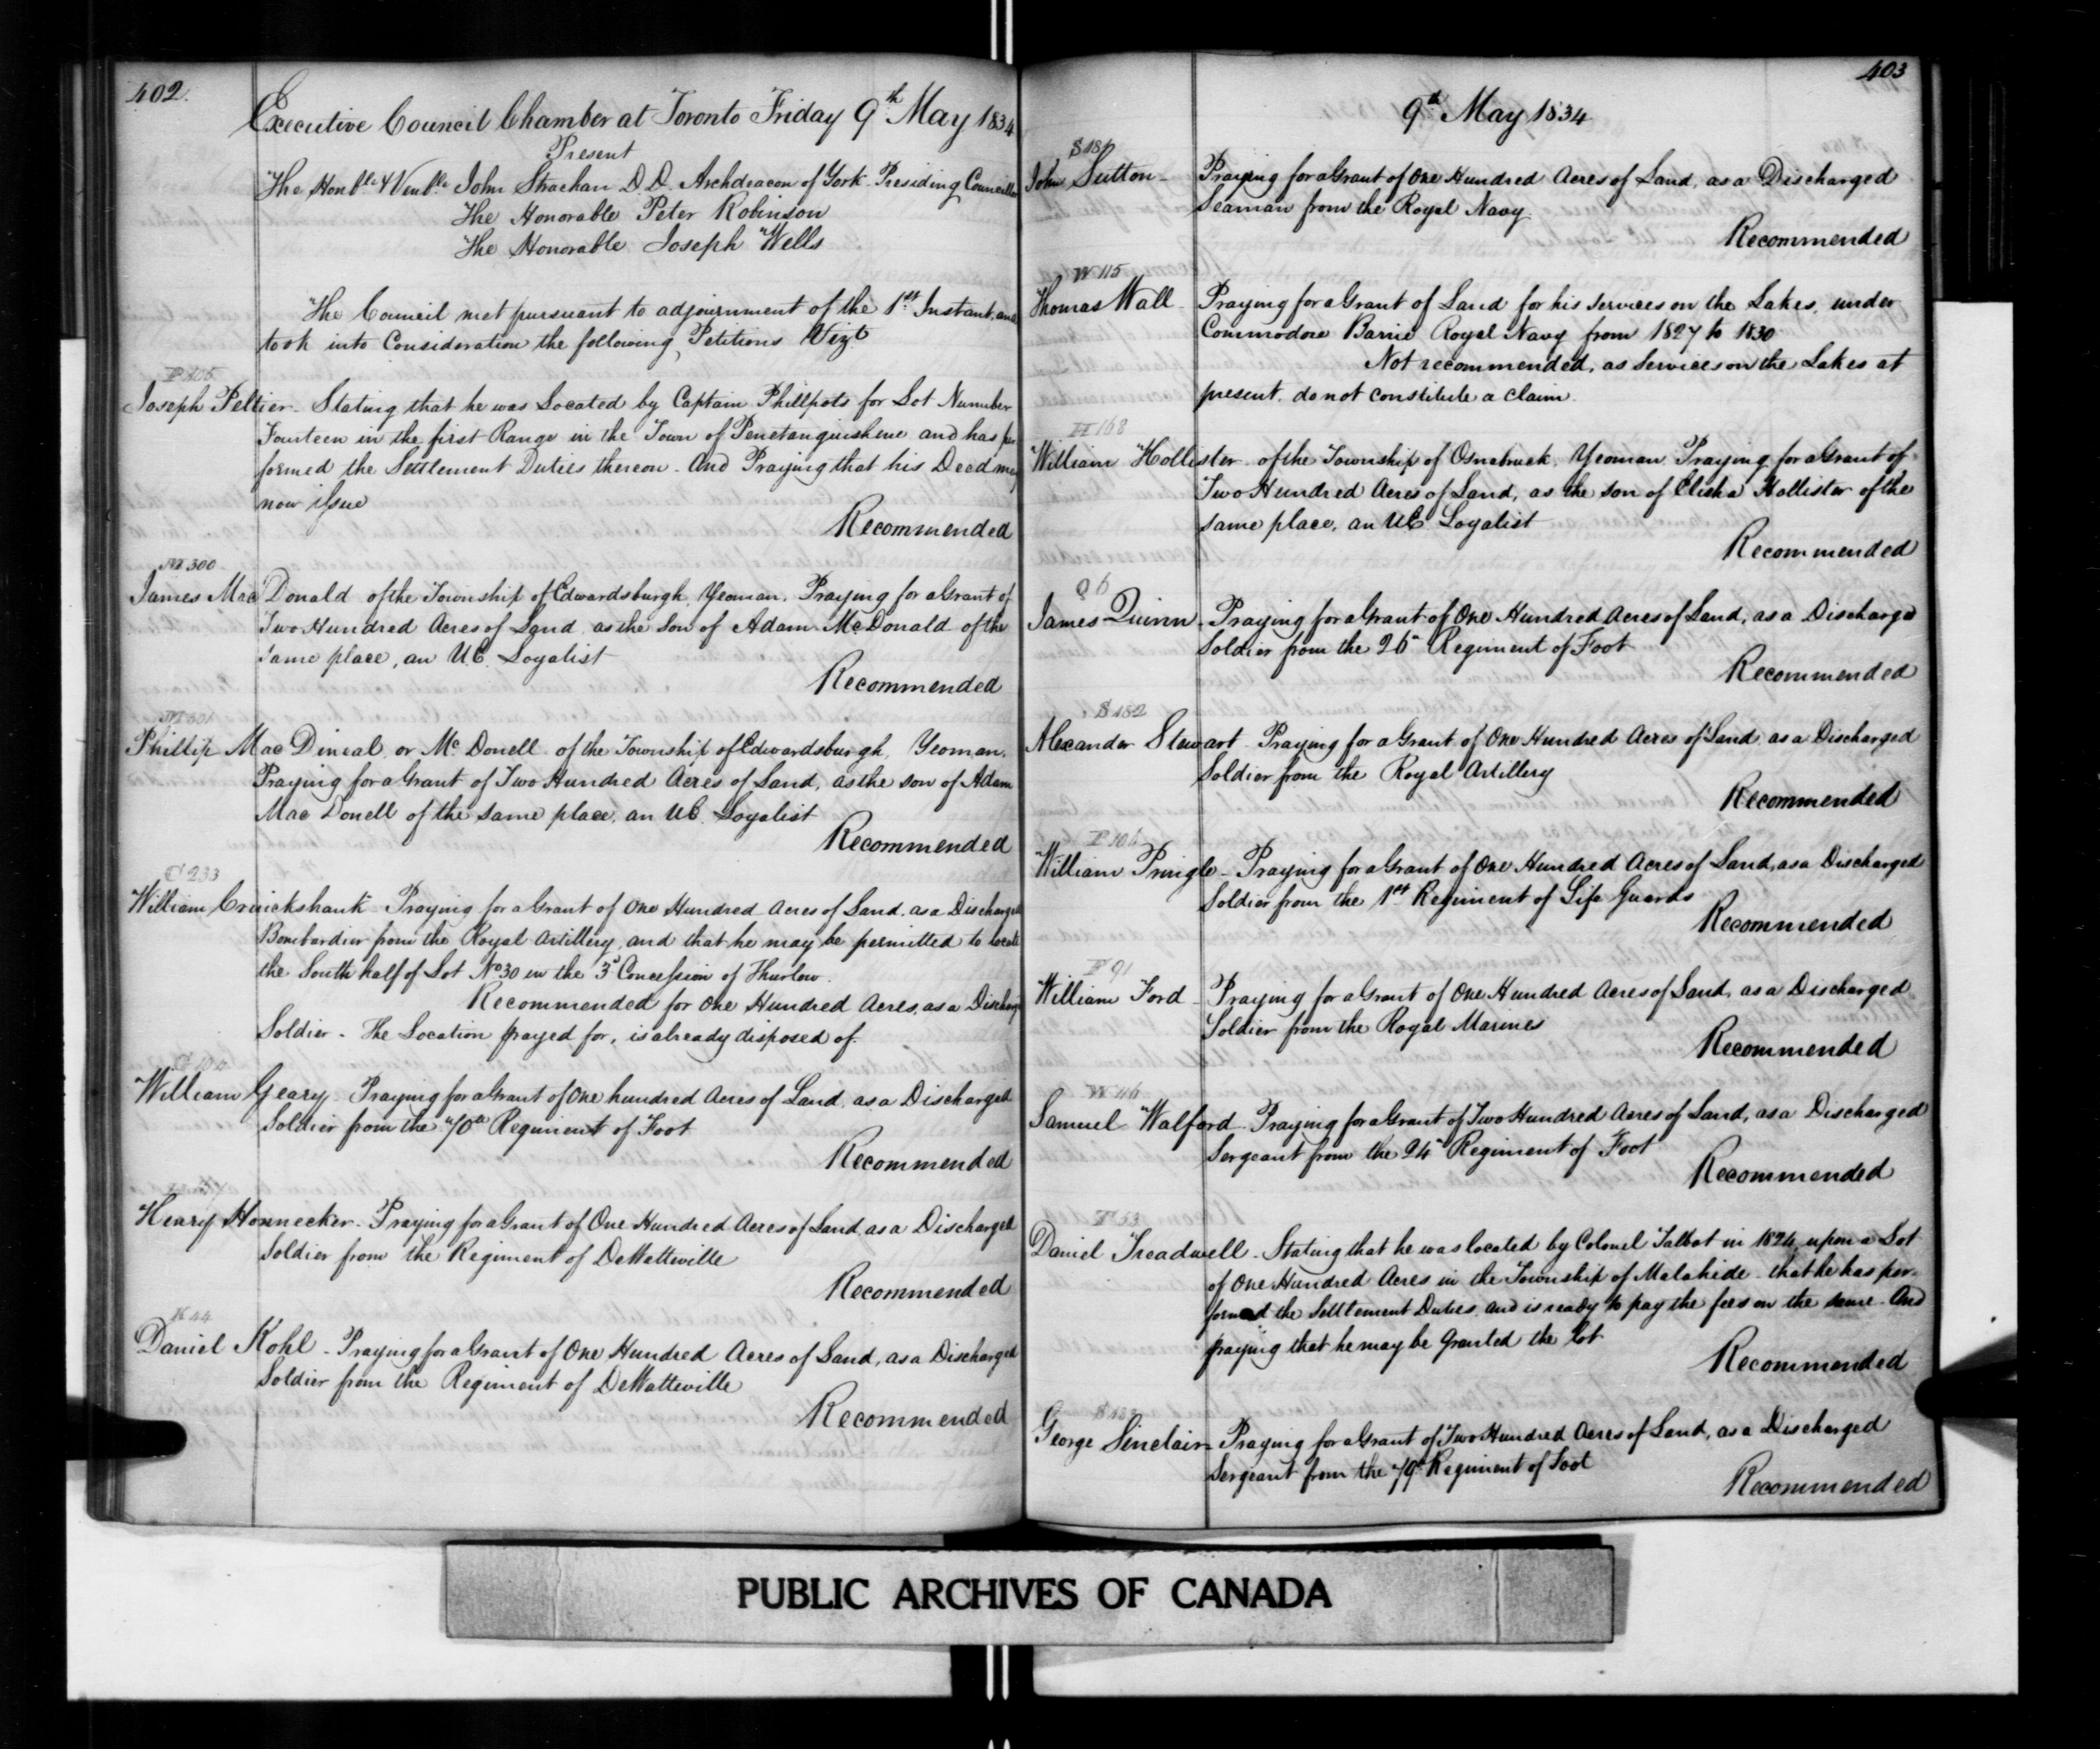 402.
Executive Council Chamber at Toronto Friday 9th May 1834
Present
The Honble & Venble John Strachan D.D. Archdeacon of York Presiding Councillor
The Honorable Peter Robinson
The Honorable Joseph Wells
The Council met pursuant to adjournment of the 1st Instant, and
took into Consideration the following Petitions Vizt
P 105
Joseph Peltier - Stating that he was Located by Captain Phillpots for Lot Number
Fourteen in the first Range in the Town of Penetanguishene and has per
formed the Settlement Duties thereon - And Praying that his Deed may
now issue
Recommended
M 300
James Mac Donald of the Township of Edwardsburgh, Yeoman. Praying for a Grant of
Two Hundred Acres of Land as the Son of Adam McDonald of the
same place, an U.E. Loyalist
Recommended
M 301
Phillip Mac Dineal or Mc Donell of the Township of Edwardsburgh, Yeoman.
Praying for a Grant of Two Hundred Acres of Land, as the son of Adam
Mac Donell of the same place, an UE. Loyalist
Recommended
C 233
William Cruickshank Praying for a Grant of One Hundred Acres of Land as a Discharged
Bombardier from the Royal Artillery, and that he may be permitted to locate
the South half of Lot No 30 in the 3d Concession of Thurlow.
Recommended for One Hundred Acres, as a Discharged
Soldier - The Location prayed for, is already disposed of.
William Geary Praying for a Grant of One hundred Acres of Land, as a Discharged
Soldier from the 70th Regiment of Foot
Recommended
Henry Honnecker - Praying for a Grant of One Hundred Acres of Land as a Discharged
Soldier from the Regiment of DeWatteville
Recommended
K 44
Daniel Kohl - Praying for a Grant of One Hundred Acres of Land, as a Discharged
Soldier from the Regiment of DeWatteville
Recommended
403
9th May 1834
S 181
John Sutton - Praying for a Grant of One Hundred Acres of Land, as a Discharged
Seaman from the Royal Navy.
Recommended
W 115
Thomas Wall - Praying for a Grant of Land for his services on the Lakes, under
Commodore Barrie Royal Navy from 1827 to 1830
Not recommended, as Services on the Lakes at
present, do not constitute a claim.
H 168
William Hollister of the Township of Osnabruck, Yeoman Praying for a Grant of
Two Hundred Acres of Land, as the son of Elisha Hollister of the
same place, an UE Loyalist
Recommended
Q 6
James Quinn - Praying for a Grant of One Hundred Acres of Land, as a Discharged
Soldier from the 26th Regiment of Foot
Recommended
S 182
Alexander Stewart - Praying for a Grant of One Hundred Acres of Land as a Discharged
Soldier from the Royal Artillery
Recommended
P 106
William Pringle - Praying for a Grant of One Hundred Acres of Land, as a Discharged
Soldier from the 1st Regiment of Life Guards
Recommended
F 91
William Ford - Praying for a Grant of One Hundred Acres of Land, as a Discharged
Soldier from the Royal Marines
Recommended
W 116
Samuel Walford - Praying for a Grant of Two Hundred Acres of Land, as a Discharged
Sergeant from the 24th Regiment of Foot
Recommended
T 53
Daniel Treadwell - Stating that he was located by Colonel Talbot in 1824, upon a Lot
of One Hundred Acres in the Township of Malahide - that he has per-
formed the Settlement Duties, and is ready to pay the fees on the same - And
praying that he may be Granted the Lot
Recommended
S 183
George Sinclair - Praying for a Grant of Two Hundred Acres of Land, as a Discharged
Sergeant from the 79th Regiment of Foot
Recommended
PUBLIC ARCHIVES OF CANADA